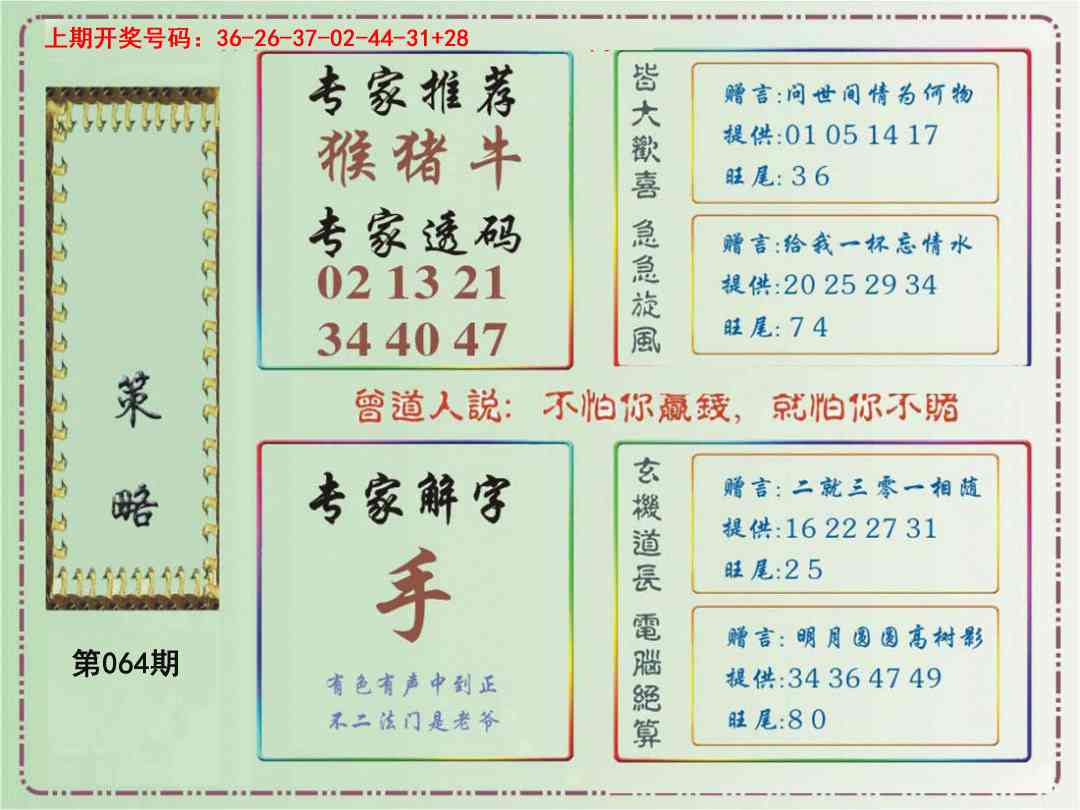 上期开奖号码：36-26-37-02-44-31+28
策
略
第064期
专家推荐
猴猪牛
专家透码
02 13 21
34 40 47
皆大歡喜
赠言:问世间情为何物
提供:01 05 14 17
旺尾: 3 6
急急旋風
赠言:给我一杯忘情水
提供:20 25 29 34
旺尾: 7 4
曾道人説：不怕你贏錢，就怕你不賭
专家解字
手
有色有声中到正
不二法门是老爷
玄機道長
赠言: 二就三零一相随
提供:16 22 27 31
旺尾:2 5
電腦絕算
赠言: 明月圆圆高树影
提供:34 36 47 49
旺尾:8 0